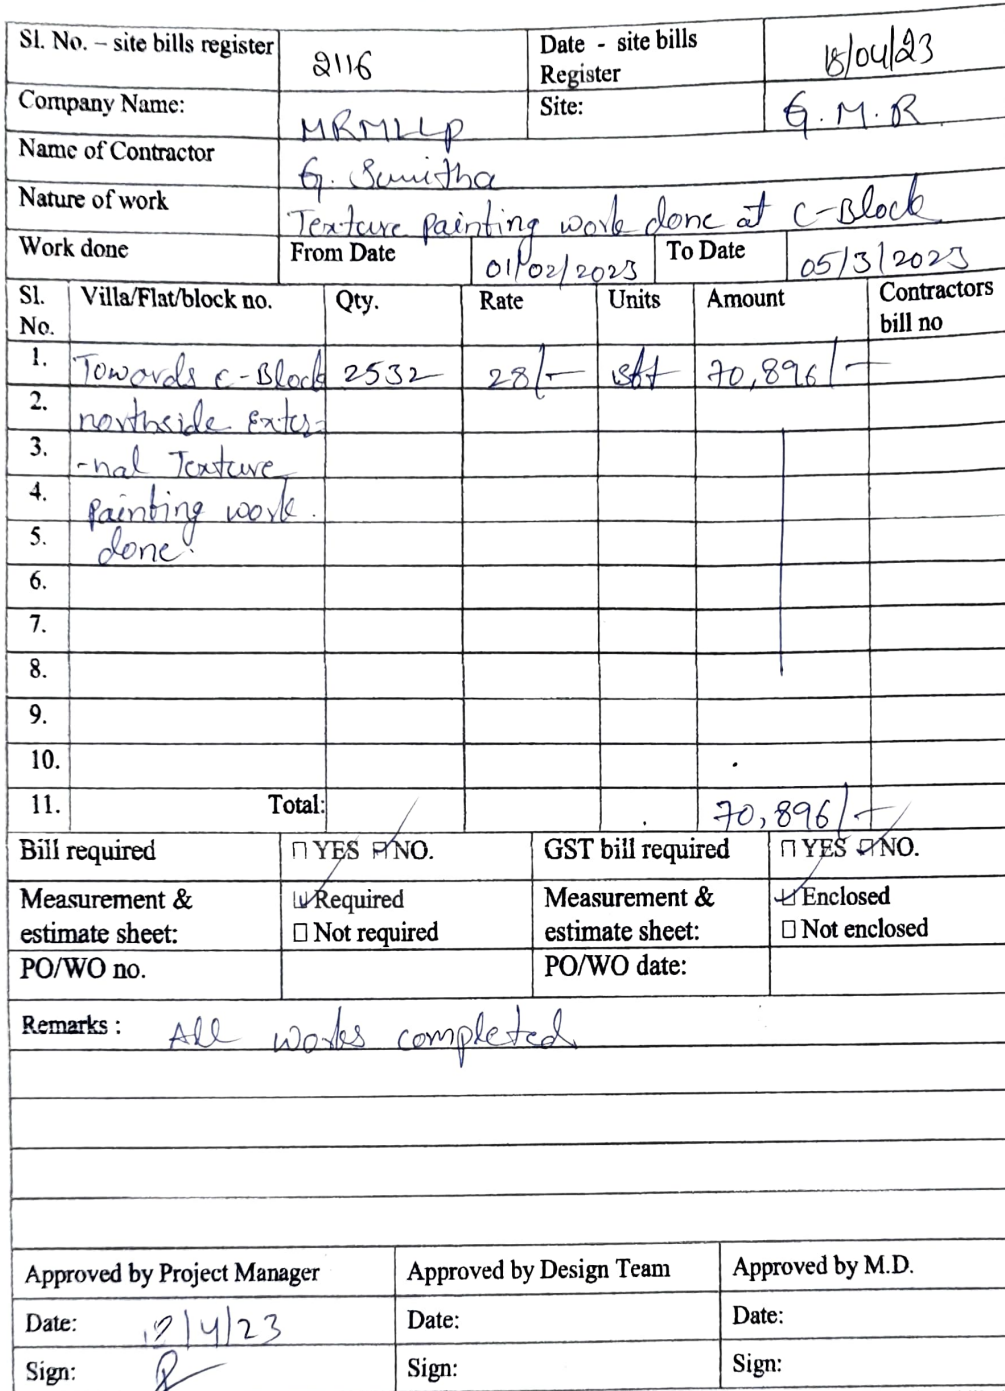 Sl. No. – site bills register 2116 Date - site bills Register 18/04/23
Company Name: MRMLLP Site: G.M.R.
Name of Contractor G. Sunitha
Nature of work Texture painting work done at C-Block
Work done From Date 01/02/2023 To Date 05/3/2023
Sl. No. Villa/Flat/block no. Qty. Rate Units Amount Contractors bill no
1. Towards C-Block 2532 28/- sft 70,896/-
2. northside Exter-
3. -nal Texture
4. painting work.
5. done.
6.
7.
8.
9.
10.
11. Total: 70,896/-
Bill required □ YES ☑ NO. GST bill required □ YES ☑ NO.
Measurement & estimate sheet: ☑ Required Measurement & estimate sheet: ☑ Enclosed
□ Not required □ Not enclosed
PO/WO no. PO/WO date:
Remarks : All works completed
Approved by Project Manager Approved by Design Team Approved by M.D.
Date: /4/23 Date: Date:
Sign: Sign: Sign: